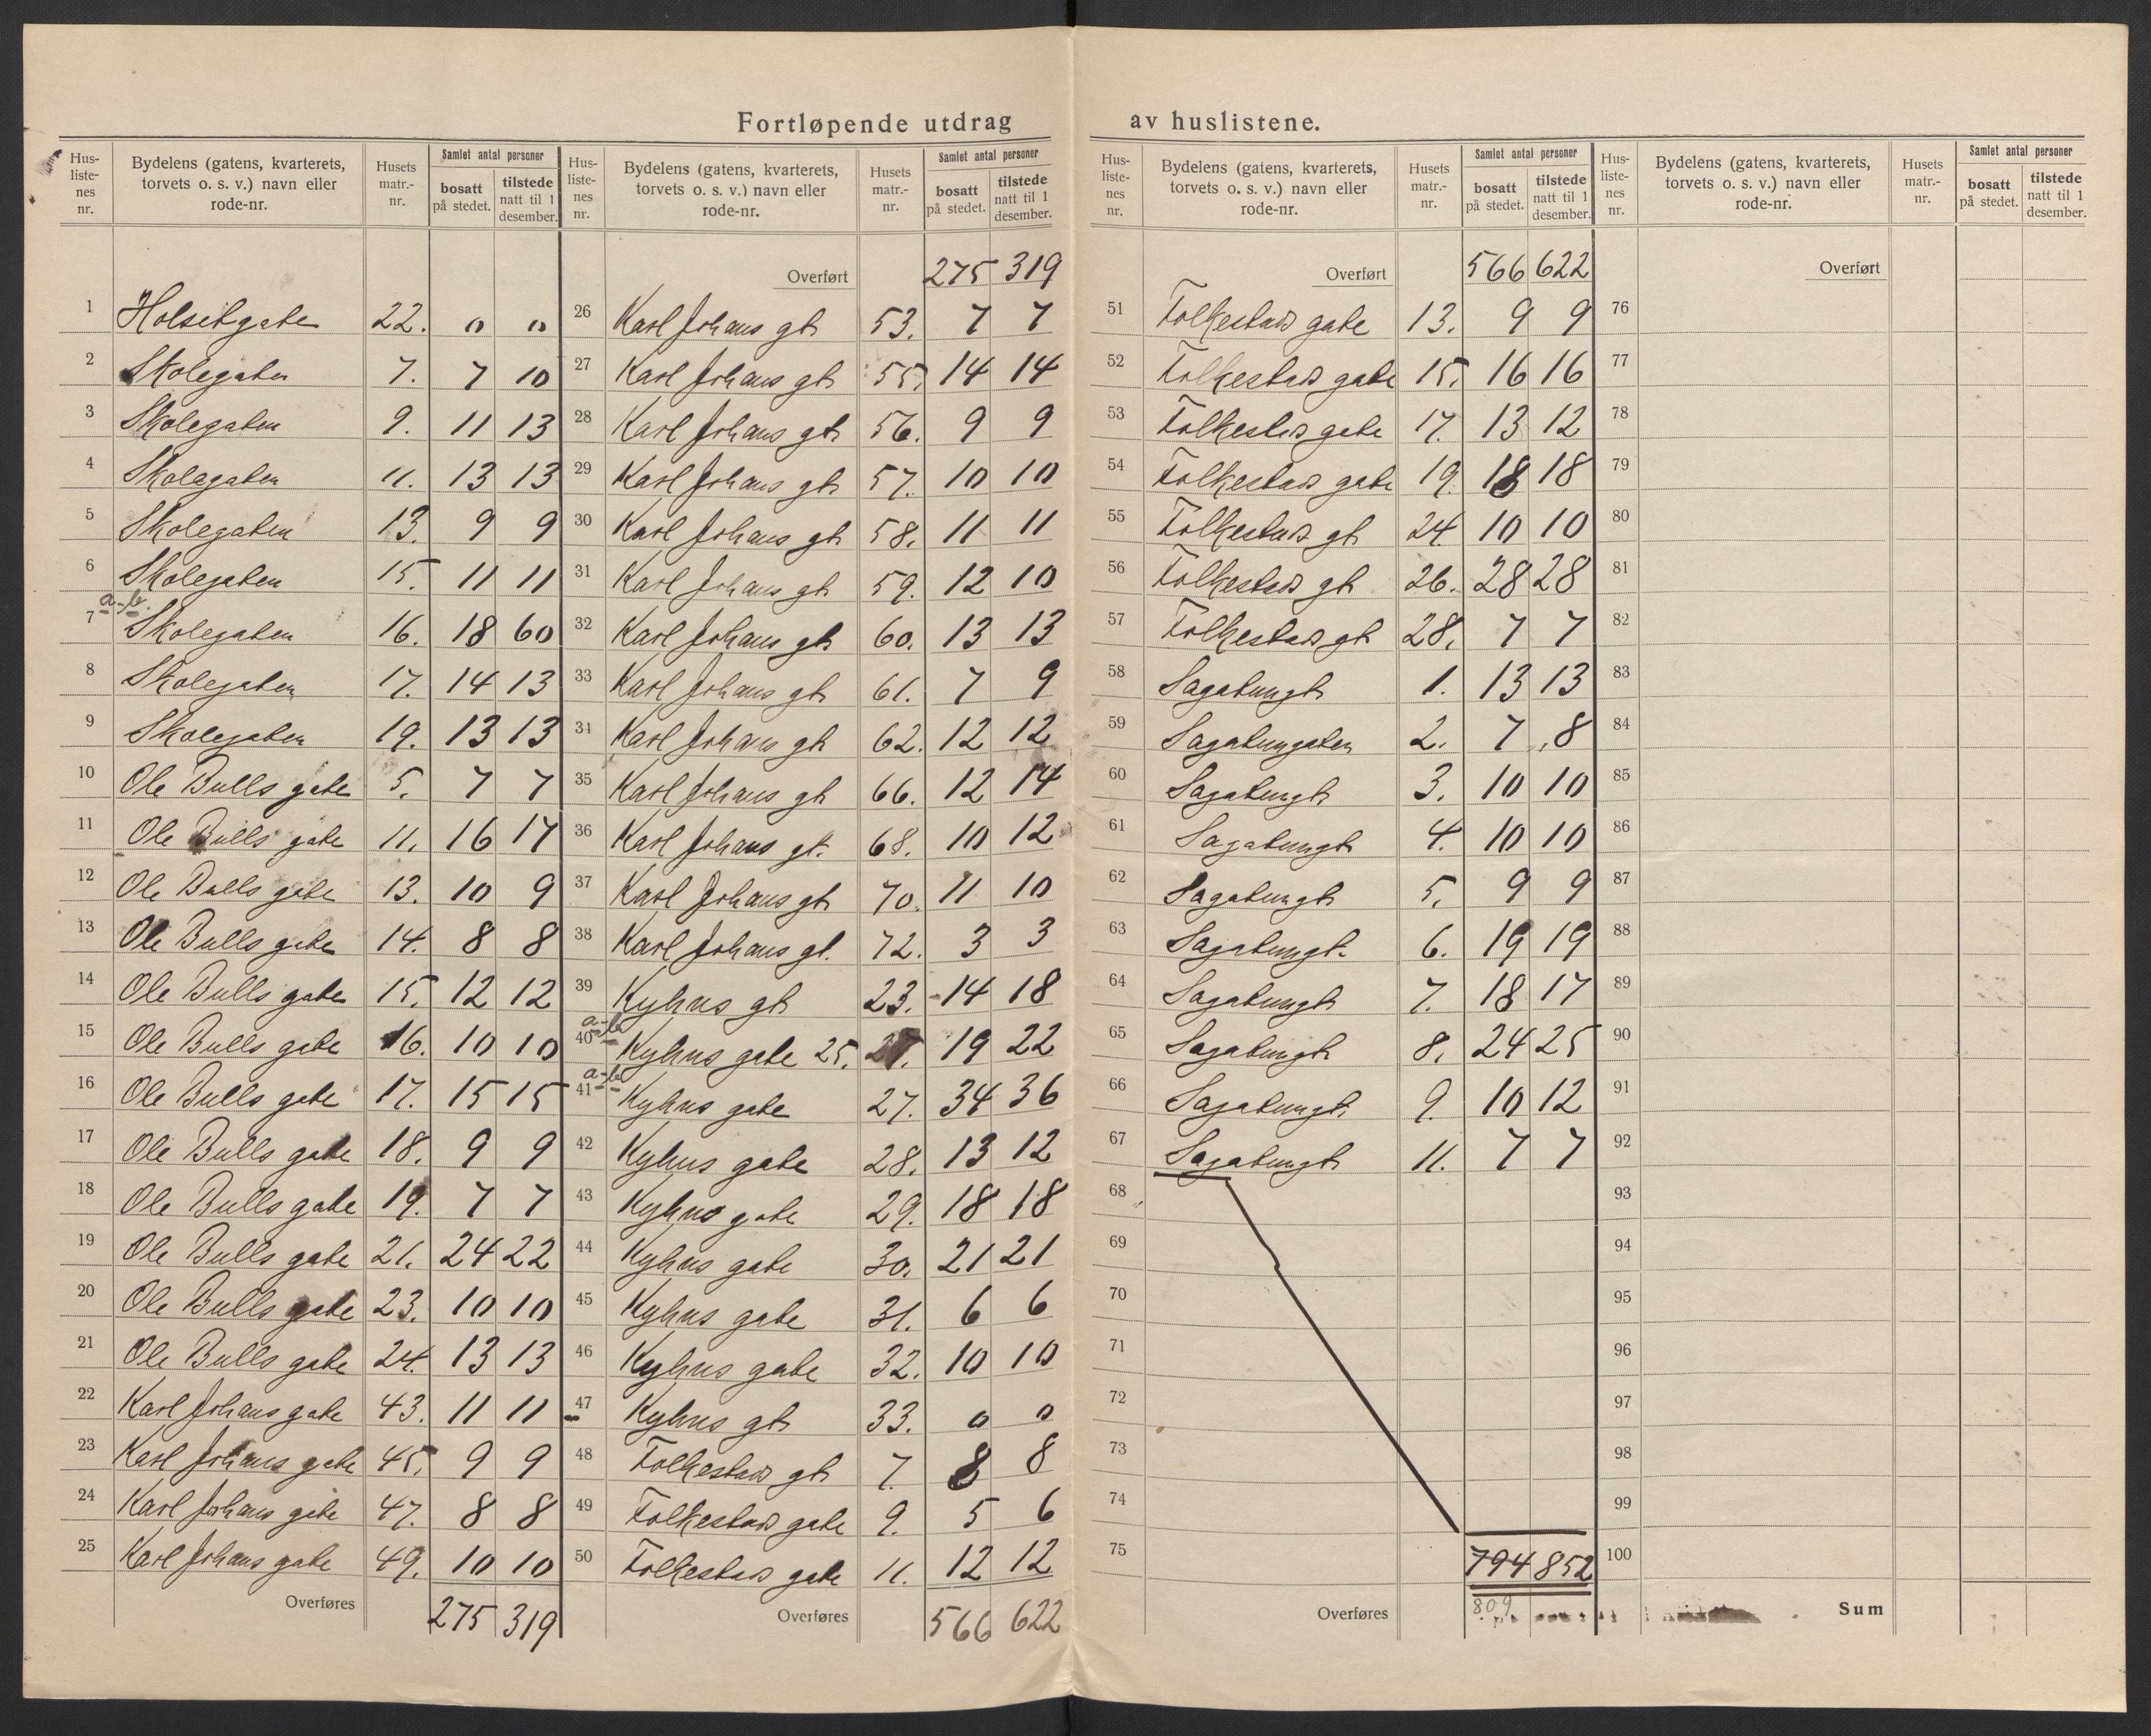 Fortløpende utdrag av huslistene.
Hus-listenes nr. Bydelens (gatens, kvarterets, torvets o. s. v.) navn eller rode-nr. Husets matr.-nr. Samlet antal personer bosatt på stedet. tilstede natt til 1 desember.
1 Holsetgaten 22. 0 0
2 Skolegaten 7. 7 10
3 Skolegaten 9. 11 13
4 Skolegaten 11. 13 13
5 Skolegaten 13. 9 9
6 Skolegaten 15. 11 11
7 a-b. Skolegaten 16. 18 60
8 Skolegaten 17. 14 13
9 Skolegaten 19. 13 13
10 Ole Bulls gate 5. 7 7
11 Ole Bulls gate 11. 16 17
12 Ole Bulls gate 13. 10 9
13 Ole Bulls gate 14. 8 8
14 Ole Bulls gate 15. 12 12
15 Ole Bulls gate 16. 10 10
16 Ole Bulls gate 17. 15 15
17 Ole Bulls gate 18. 9 9
18 Ole Bulls gate 19. 7 7
19 Ole Bulls gate 21. 24 22
20 Ole Bulls gate 23. 10 10
21 Ole Bulls gate 24. 13 13
22 Karl Johans gate 43. 11 11
23 Karl Johans gate 45. 9 9
24 Karl Johans gate 47. 8 8
25 Karl Johans gate 49. 10 10
Overføres 275 319
Hus-listenes nr. Bydelens (gatens, kvarterets, torvets o. s. v.) navn eller rode-nr. Husets matr.-nr. Samlet antal personer bosatt på stedet. tilstede natt til 1 desember.
Overført 275 319
26 Karl Johans gt. 53. 7 7
27 Karl Johans gt. 55. 14 14
28 Karl Johans gt. 56. 9 9
29 Karl Johans gt. 57. 10 10
30 Karl Johans gt. 58. 11 11
31 Karl Johans gt. 59. 12 10
32 Karl Johans gt. 60. 13 13
33 Karl Johans gt. 61. 7 9
34 Karl Johans gt. 62. 12 12
35 Karl Johans gt 66. 12 14
36 Karl Johans gt. 68. 10 12
37 Karl Johans gt. 70. 11 10
38 Karl Johans gt. 72. 3 3
39 Kyhns gt 23. 14 18
40 a-b Kyhns gate 25. 19 22
41 a-b Kyhns gate 27. 34 36
42 Kyhns gate 28. 13 12
43 Kyhns gate 29. 18 18
44 Kyhns gate 30. 21 21
45 Kyhns gate 31. 6 6
46 Kyhns gate 32. 10 10
47 Kyhns gt. 33. 0 0
48 Folkestads gt. 7. 8 8
49 Folkestads gate 9. 5 6
50 Folkestads gate 11. 12 12
Overføres 566 622
Hus-listenes nr. Bydelens (gatens, kvarterets, torvets o. s. v.) navn eller rode-nr. Husets matr.-nr. Samlet antal personer bosatt på stedet. tilstede natt til 1 desember.
Overført 566 622
51 Folkestads gate 13. 9 9
52 Folkestads gate 15. 16 16
53 Folkestads gate 17. 13 12
54 Folkestads gate 19. 18 18
55 Folkestads gt. 24. 10 10
56 Folkestads gt. 26. 28 28
57 Folkestads gt 28. 7 7
58 Sagatungt. 1. 13 13
59 Sagatungaten 2. 7 8
60 Sagatungt. 3. 10 10
61 Sagatungt. 4. 10 10
62 Sagatungt. 5. 9 9
63 Sagatungt. 6. 19 19
64 Sagatungt. 7. 18 17
65 Sagatungt. 8. 24 25
66 Sagatungt. 9. 10 12
67 Sagatungt. 11. 7 7
68
69
70
71
72
73
74
75 794 852
Overføres 809
Hus-listenes nr. Bydelens (gatens, kvarterets, torvets o. s. v.) navn eller rode-nr. Husets matr.-nr. Samlet antal personer bosatt på stedet. tilstede natt til 1 desember.
Overført
76
77
78
79
80
81
82
83
84
85
86
87
88
89
90
91
92
93
94
95
96
97
98
99
100
Sum